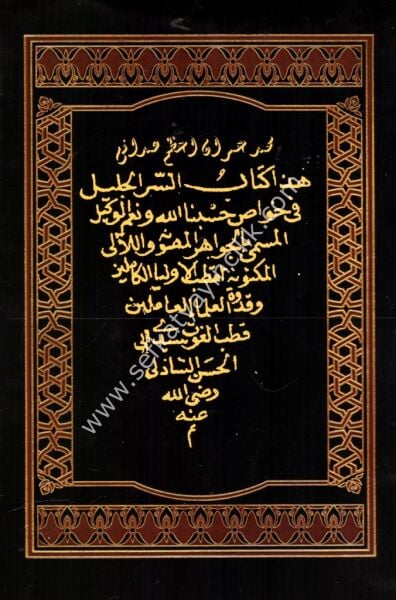 محمد عمران اعظم همدانی
هذا كتاب السر الجليل
في خواص حسبنا الله ونعم الوكيل
المسمى بالجواهر المصونة واللآلى
المكنونة لقطب الاوليا الكاملين
وقدوة العلما العاملين
قطب الغوث سيدي ابي
الحسن الشاذلي
رضى الله
عنه
م
www.seminaryayincilik.com